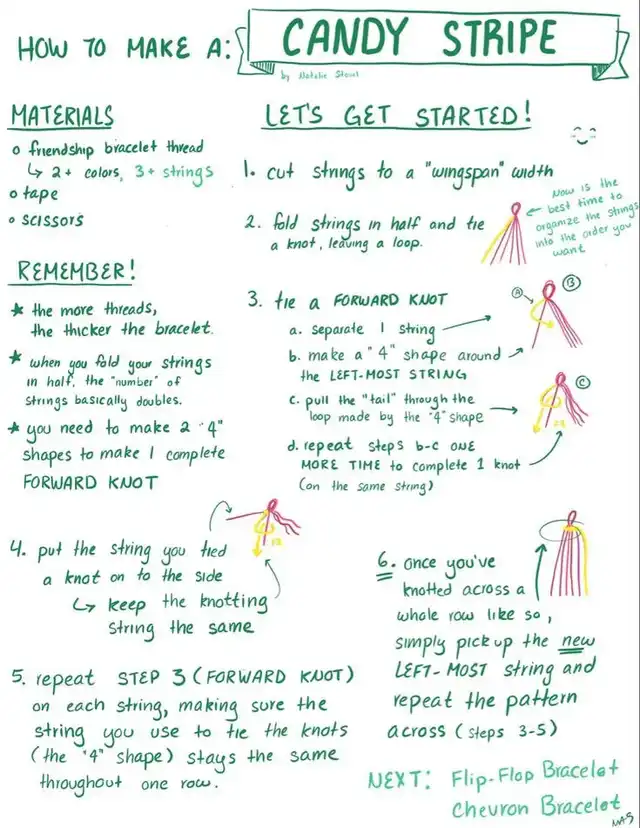 HOW TO MAKE A:
CANDY STRIPE
by Natalie
MATERIALS
friendship bracelet thread
↳ 2+ colors, 3+ strings
tape
scissors
REMEMBER!
★ the more threads,
the thicker the bracelet.
★ when you fold your strings
in half, the "number" of
strings basically doubles.
★ you need to make 2 "4"
shapes to make 1 complete
FORWARD KNOT
LET'S GET STARTED!
1. cut strings to a "wingspan" width
2. fold strings in half and tie
a knot, leaving a loop.
Now is the
best time to
organize the strings
into the order you
want
3. tie a FORWARD KNOT
a. separate 1 string
b. make a "4" shape around
the LEFT-MOST STRING
c. pull the "tail" through the
loop made by the "4" shape
d. repeat steps b-c ONE
MORE TIME to complete 1 knot
(on the same string)
A
B
C
4. put the string you tied
a knot on to the side
↳ keep the knotting
string the same
5. repeat STEP 3 (FORWARD KNOT)
on each string, making sure the
string you use to tie the knots
(the "4" shape) stays the same
throughout one row.
6. once you've
knotted across a
whole row like so,
simply pick up the new
LEFT-MOST string and
repeat the pattern
across (steps 3-5)
NEXT: Flip-Flop Bracelet
Chevron Bracelet